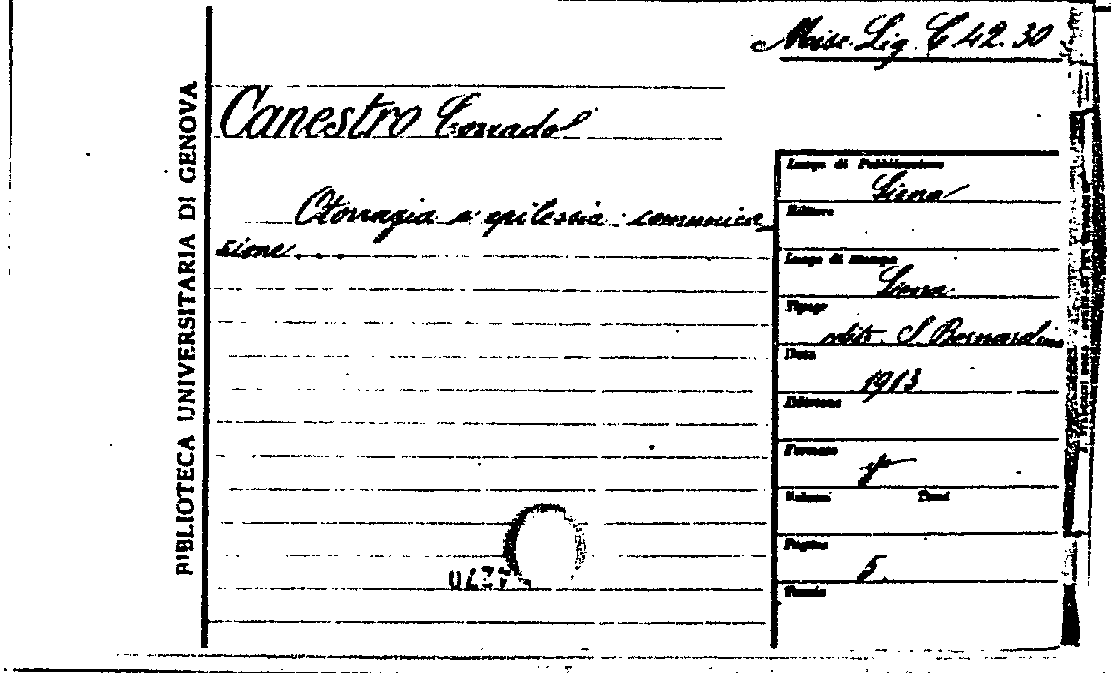 Misc. Lig. C 42.30
BIBLIOTECA UNIVERSITARIA DI GENOVA
Canestro Corrado
Otorragia e epilessia: comunica
zione....
Luogo di Pubblicazione
Siena
Editore
Luogo di stampa
Siena
Tipogr
edit. S. Bernardino
Data
1913
Edizione
Formato
8°
Volumi Tomi
Pagine
5.